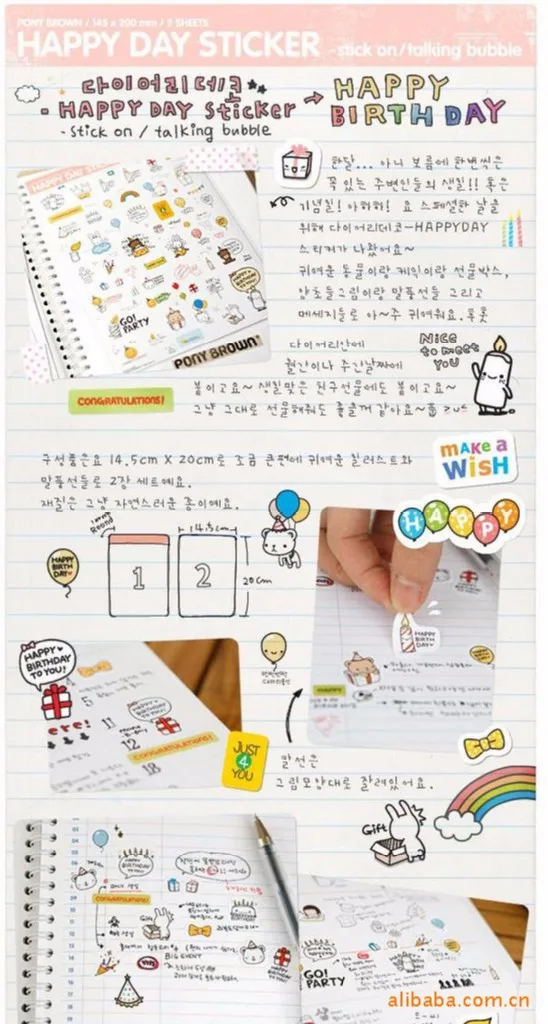 PONY BROWN / 145 x 200 mm / 2 SHEETS
HAPPY DAY STICKER -stick on/talking bubble
다이어리데코
- HAPPY DAY Sticker →
-stick on / talking bubble
HAPPY
BIRTH DAY
한달... 아니 보름에 한번씩은
꼭 있는 주변인들의 생일!! 혹은
기념일! 아하하! 요 스페셜한 날을
위해 다이어리데코-HAPPYDAY
스티커가 나왔어요~
귀여운 동물이랑 케익이랑 선물박스,
양초들그림이랑 말풍선들 그리고
메세지들로 아~주 귀여워요.
다이어리안에
월간이나 주간날짜에
붙이고요~ 생일맞은 친구선물에도 붙이고요~
그냥 그대로 선물해줘도 좋을꺼 같아요~
Nice
to meet
YOU
GO!
PARTY
PONY BROWN
CONGRATULATIONS!
MAKE a
WISH
구성품은요 14.5cm X 20cm로 조금 큰편에 귀여운 일러스트와
말풍선들로 2장 세트예요.
재질은 그냥 자연스러운 종이예요.
HAPPY
Round
14.5cm
1
2
20cm
HAPPY
BIRTH
DAY
HAPPY
BIRTH
DAY
HAPPY
BIRTHDAY
TO YOU!
ere!
4
5
11
12
18
CONGRATULATIONS!
JUST
4
YOU
말선은
그림모양대로 잘려있어요.
Gift
CONGRATULATIONS!
Gift
BIG EVENT
GO!
PARTY
alibaba.com.cn